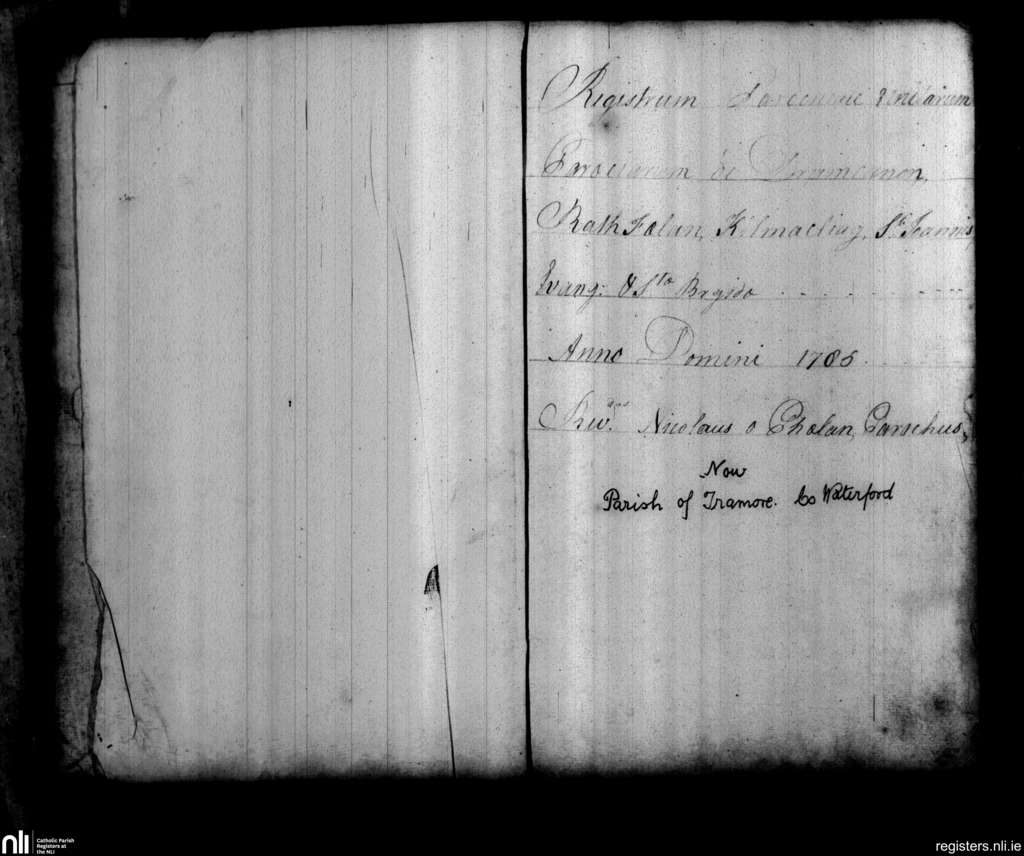 Registrum
Parociarum de Drumcannon,
Rath Fælan, Kilmacleag, Sti Joannis
Evang: & Sta Brgida
Anno Domini 1786
Revdus Nicolaus o Phælan, Parochus,
Now
Parish of Tramore. Co Waterford
nli
Catholic Parish
Registers at
the NLI
registers.nli.ie